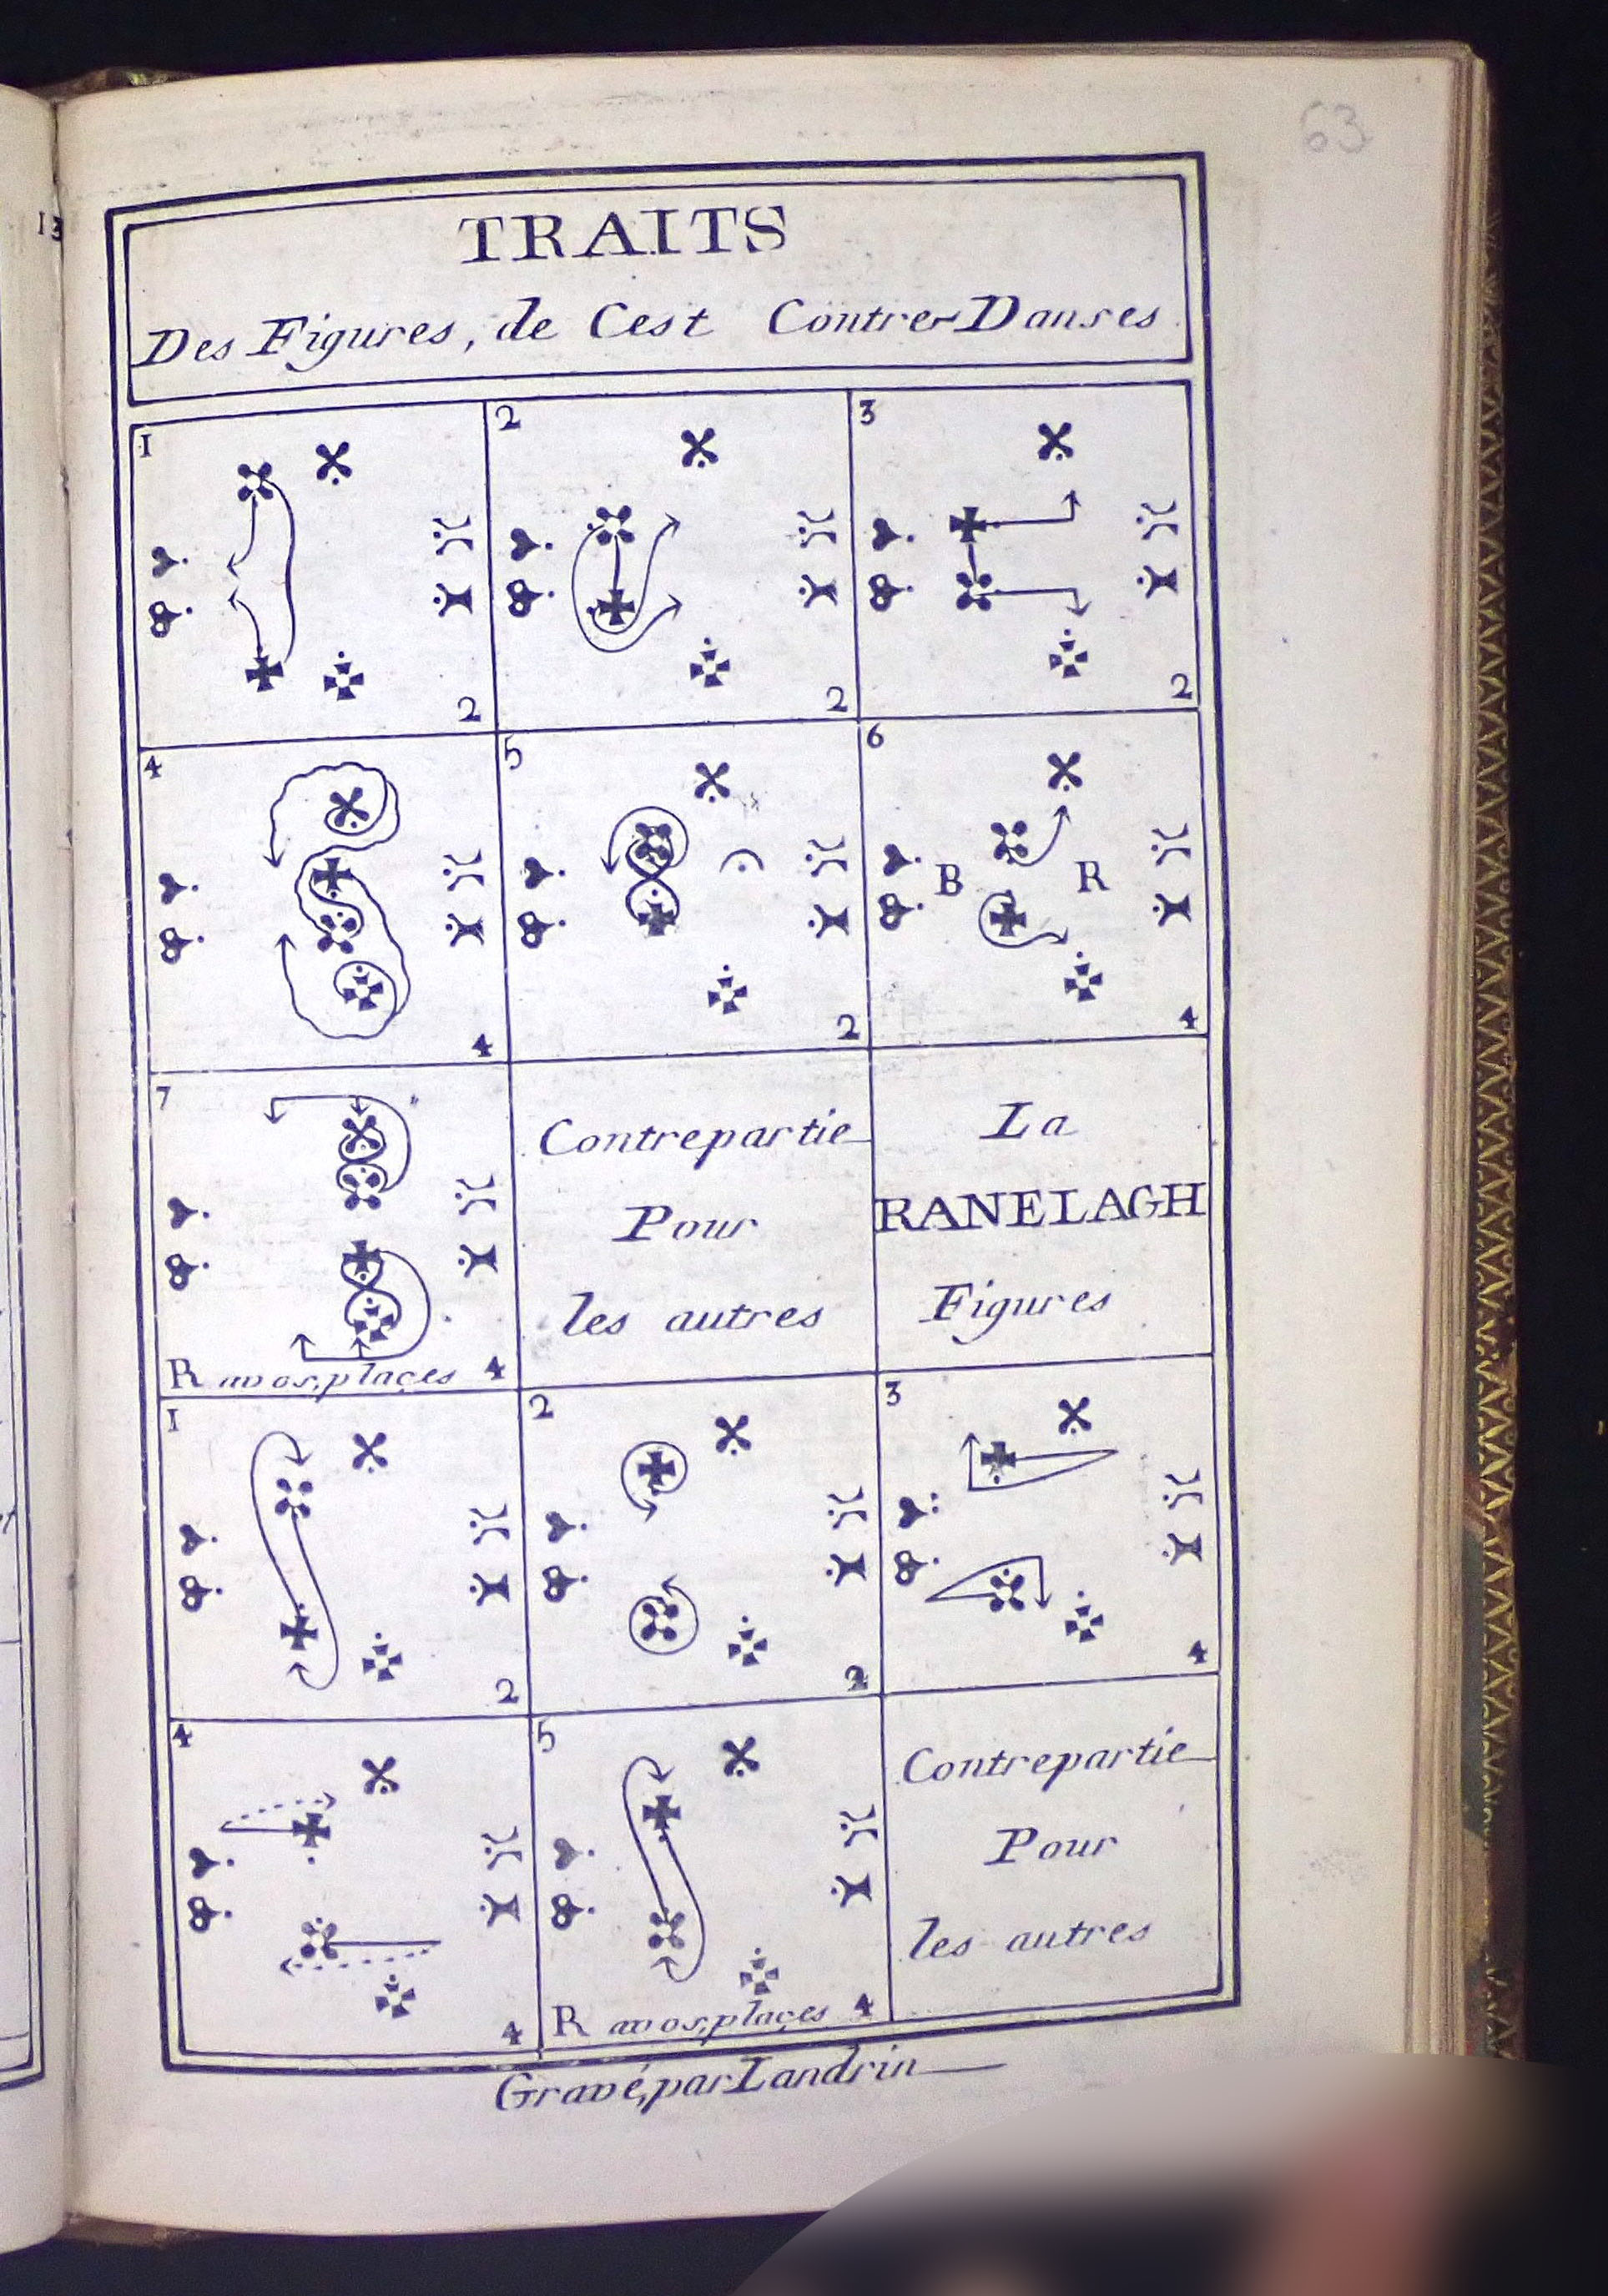 63
13
TRAITS
Des Figures, de Cest Contre-Danses
1
2
2
2
3
2
4
4
5
2
6
B R
4
7
R a vos places 4
Contrepartie
Pour
les autres
La
RANELAGH
Figures
1
2
2
2
3
4
4
4
5
R a vos places 4
Contrepartie
Pour
les autres
Gravé, par Landrin